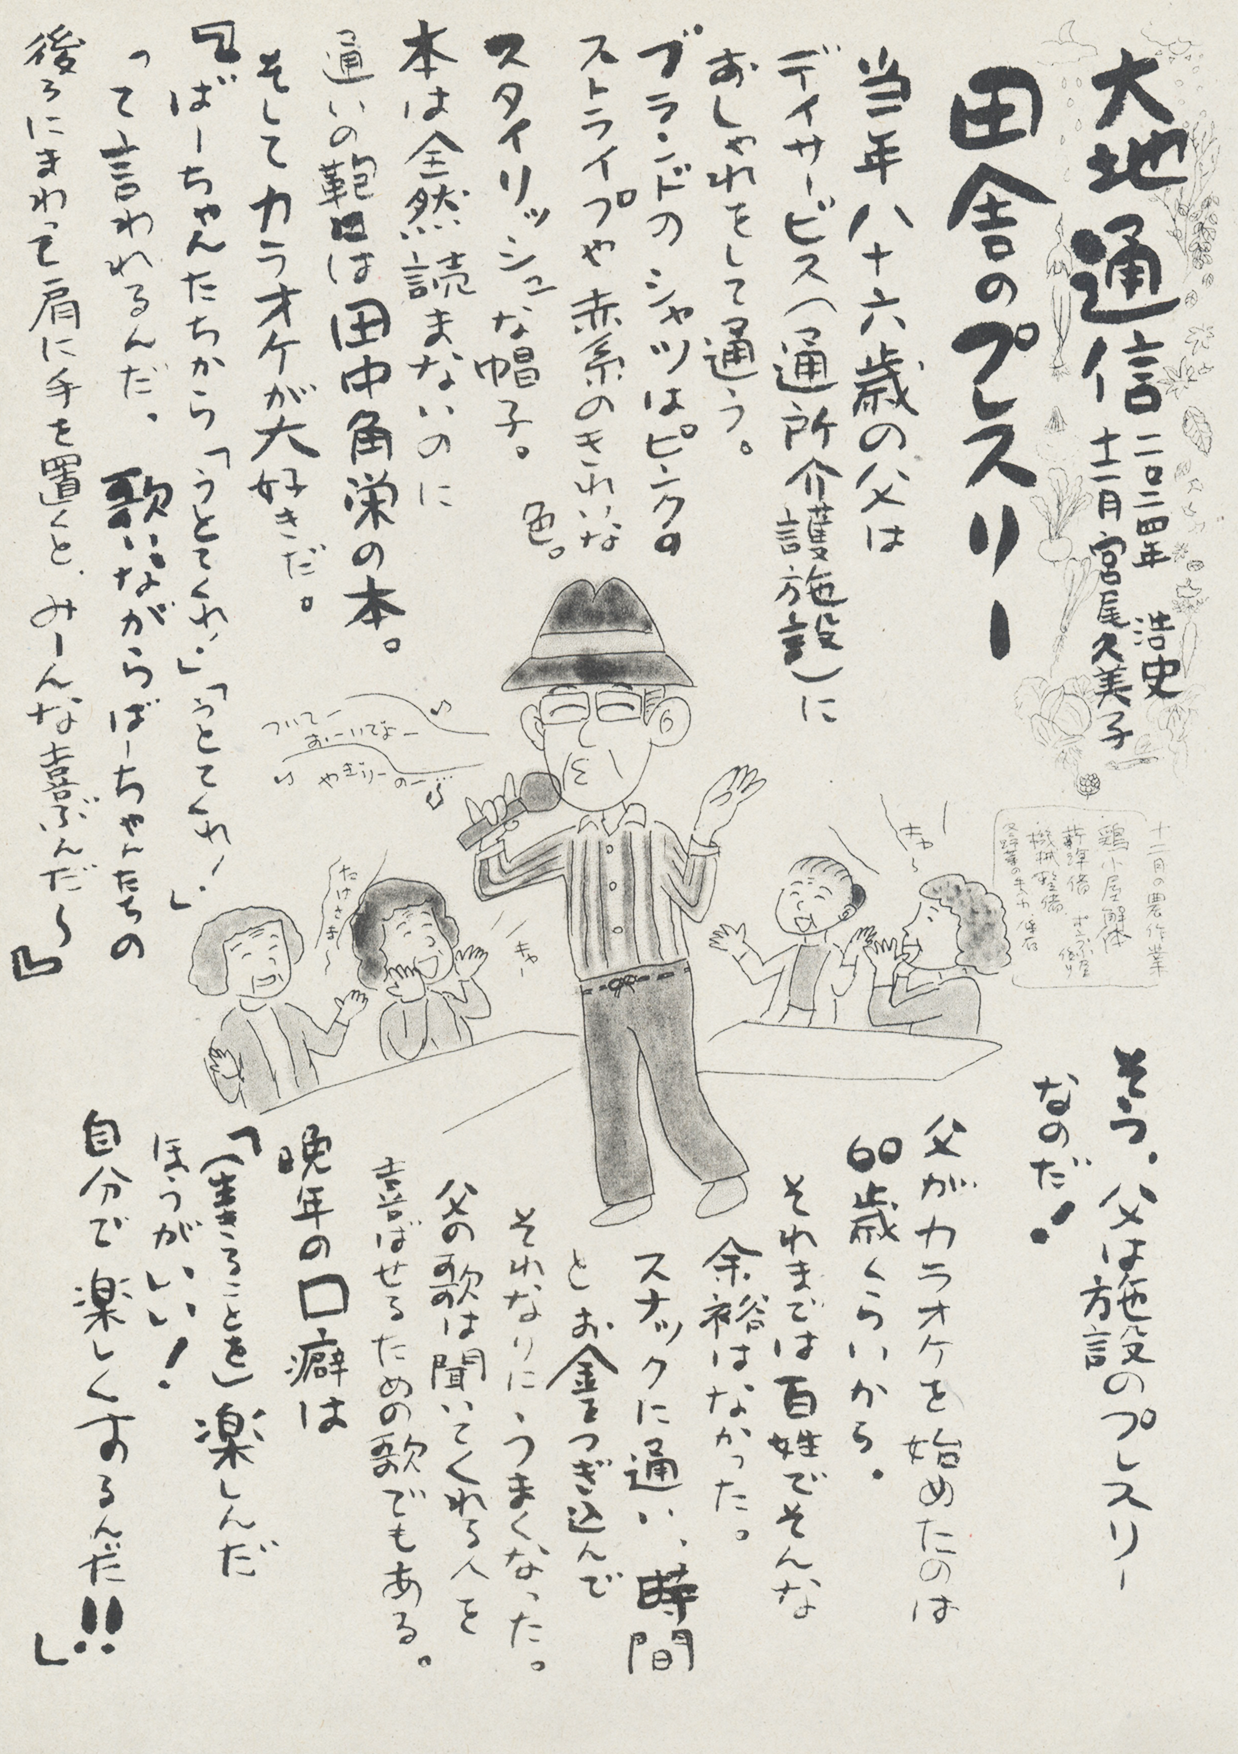 大地通信
二〇二四年
十二月
浩史
宮尾久美子
田舎のプレスリー
当年八十六歳の父は
デイサービス(通所介護施設)に
おしゃれをして通う。
ブランドのシャツはピンクの
ストライプや赤系のきれいな
色。
スタイリッシュな帽子。
本は全然読まないのに
通いの鞄は田中角栄の本。
そしてカラオケが大好きだ。
『ばーちゃんたちから「うとてくれ!」「うとてくれ!」
って言われるんだ。歌いながらばーちゃんたちの
後ろにまわって肩に手を置くと、みーんな喜ぶんだ〜』
ついてー
おーいでよー
やぎりーのー
たけさま〜
キャー
キャ〜
十二月の農作業
鶏小屋解体
薪準備
機械整備
冬野菜の
保存
そう、父は施設のプレスリー
なのだ!
父がカラオケを始めたのは
60歳くらいから。
それまでは百姓でそんな
余裕はなかった。
スナックに通い、時間
とお金をつぎ込んで
それなりにうまくなった。
父の歌は聞いてくれる人を
喜ばせるための歌でもある。
晩年の口癖は
「(生きることを)楽しんだ
ほうがいい!
自分で楽しくするんだ!!」